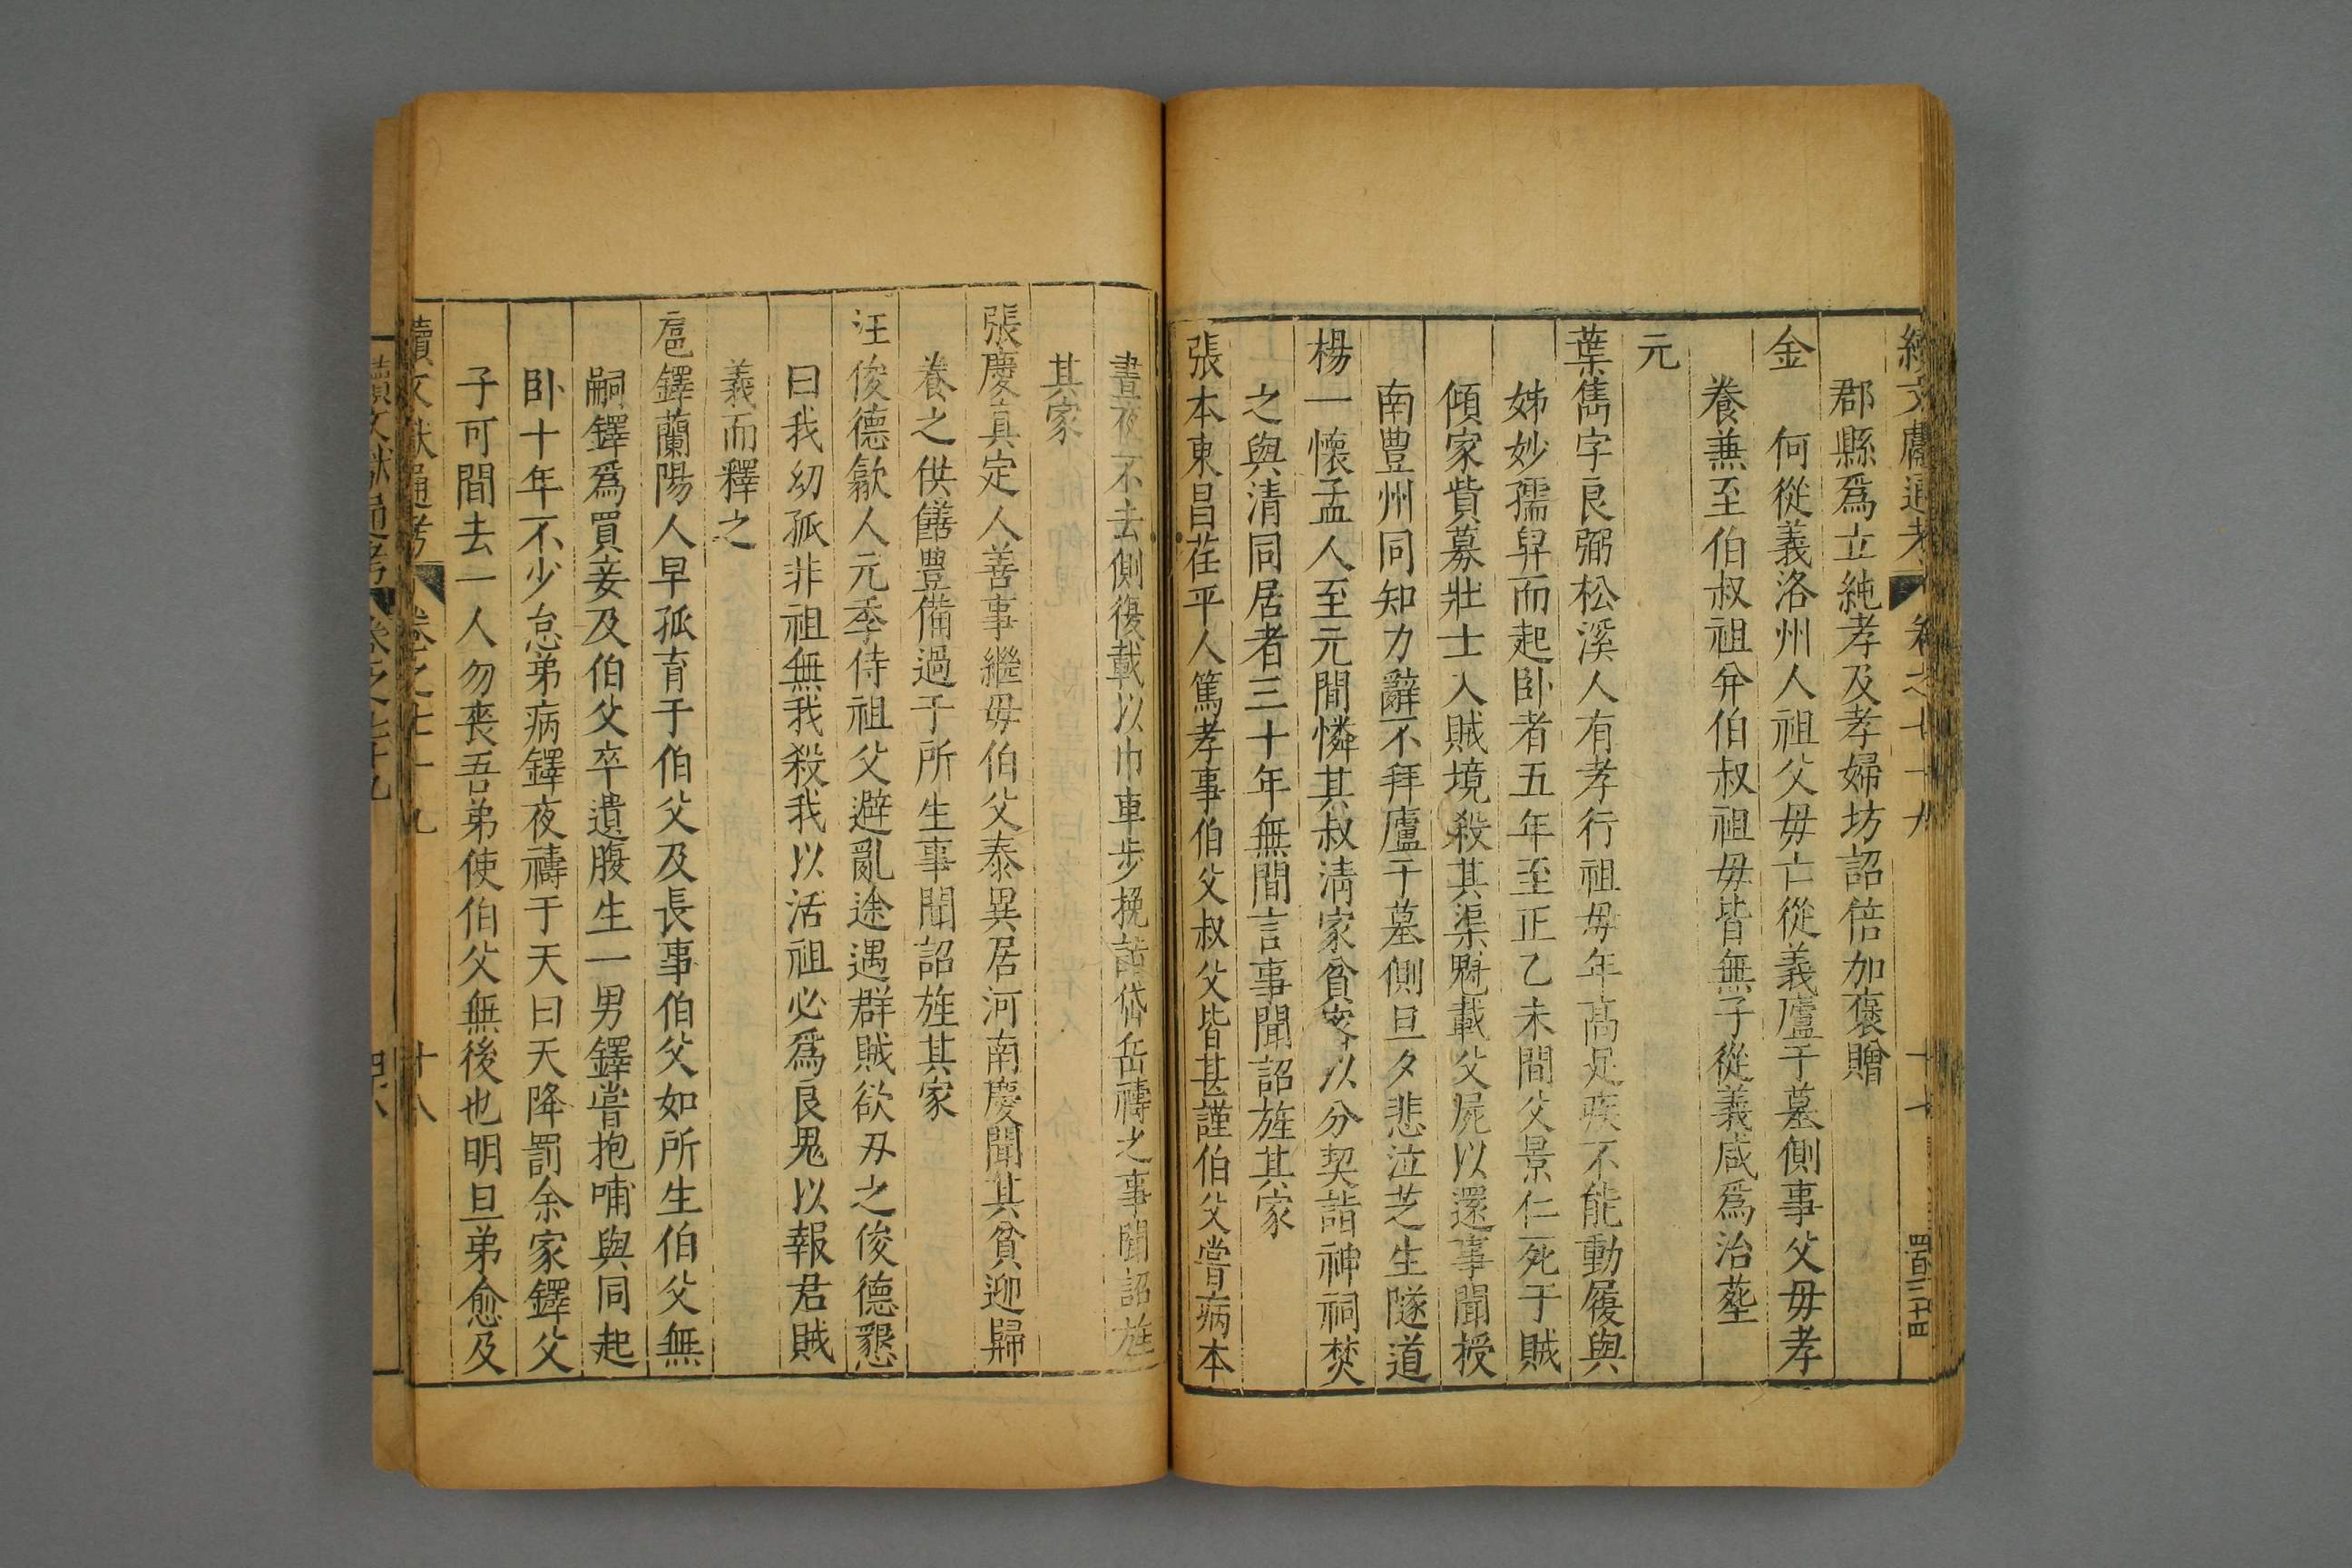 續文獻通考 卷之七十九 十七 四百三十四
郡縣爲立純孝及孝婦坊詔倍加褒贈
金 何從義洛州人祖父毋亡從義廬于墓側事父毋孝
養兼至伯叔祖幷伯叔祖毋皆無子從義咸爲治塟
元
葉雋字良弼松溪人有孝行祖毋年高足疾不能動履與
姊妙孺舁而起卧者五年至正乙未間父景仁死于賊
傾家貲募壯士入賊境殺其渠魁載父屍以還事聞授
南豊州同知力辭不拜廬于墓側旦夕悲泣芝生隧道
楊一懷孟人至元間憐其叔清家貧密以分契詣神祠焚
之與清同居者三十年無間言事聞詔旌其家
張本東昌茌平人篤孝事伯父叔父皆甚謹伯父嘗病本
晝夜不去側復載以巾車步挽詣岱岳禱之事聞詔旌
其家
張慶真定人善事繼毋伯父泰異居河南慶聞其貧迎歸
養之供饍豐備過于所生事聞詔旌其家
汪俊德歙人元季侍祖父避亂途遇群賊欲刃之俊德懇
曰我幼孤非祖無我殺我以活祖必爲良鬼以報君賊
義而釋之
扈鐸蘭陽人早孤育于伯父及長事伯父如所生伯父無
嗣鐸爲買妾及伯父卒遺腹生一男鐸嘗抱哺與同起
卧十年不少怠弟病鐸夜禱于天曰天降罰余家鐸父
子可間去一人勿喪吾弟使伯父無後也明旦弟愈及
續文獻通考 卷之七十九 十八
續文獻通考 卷之七十九